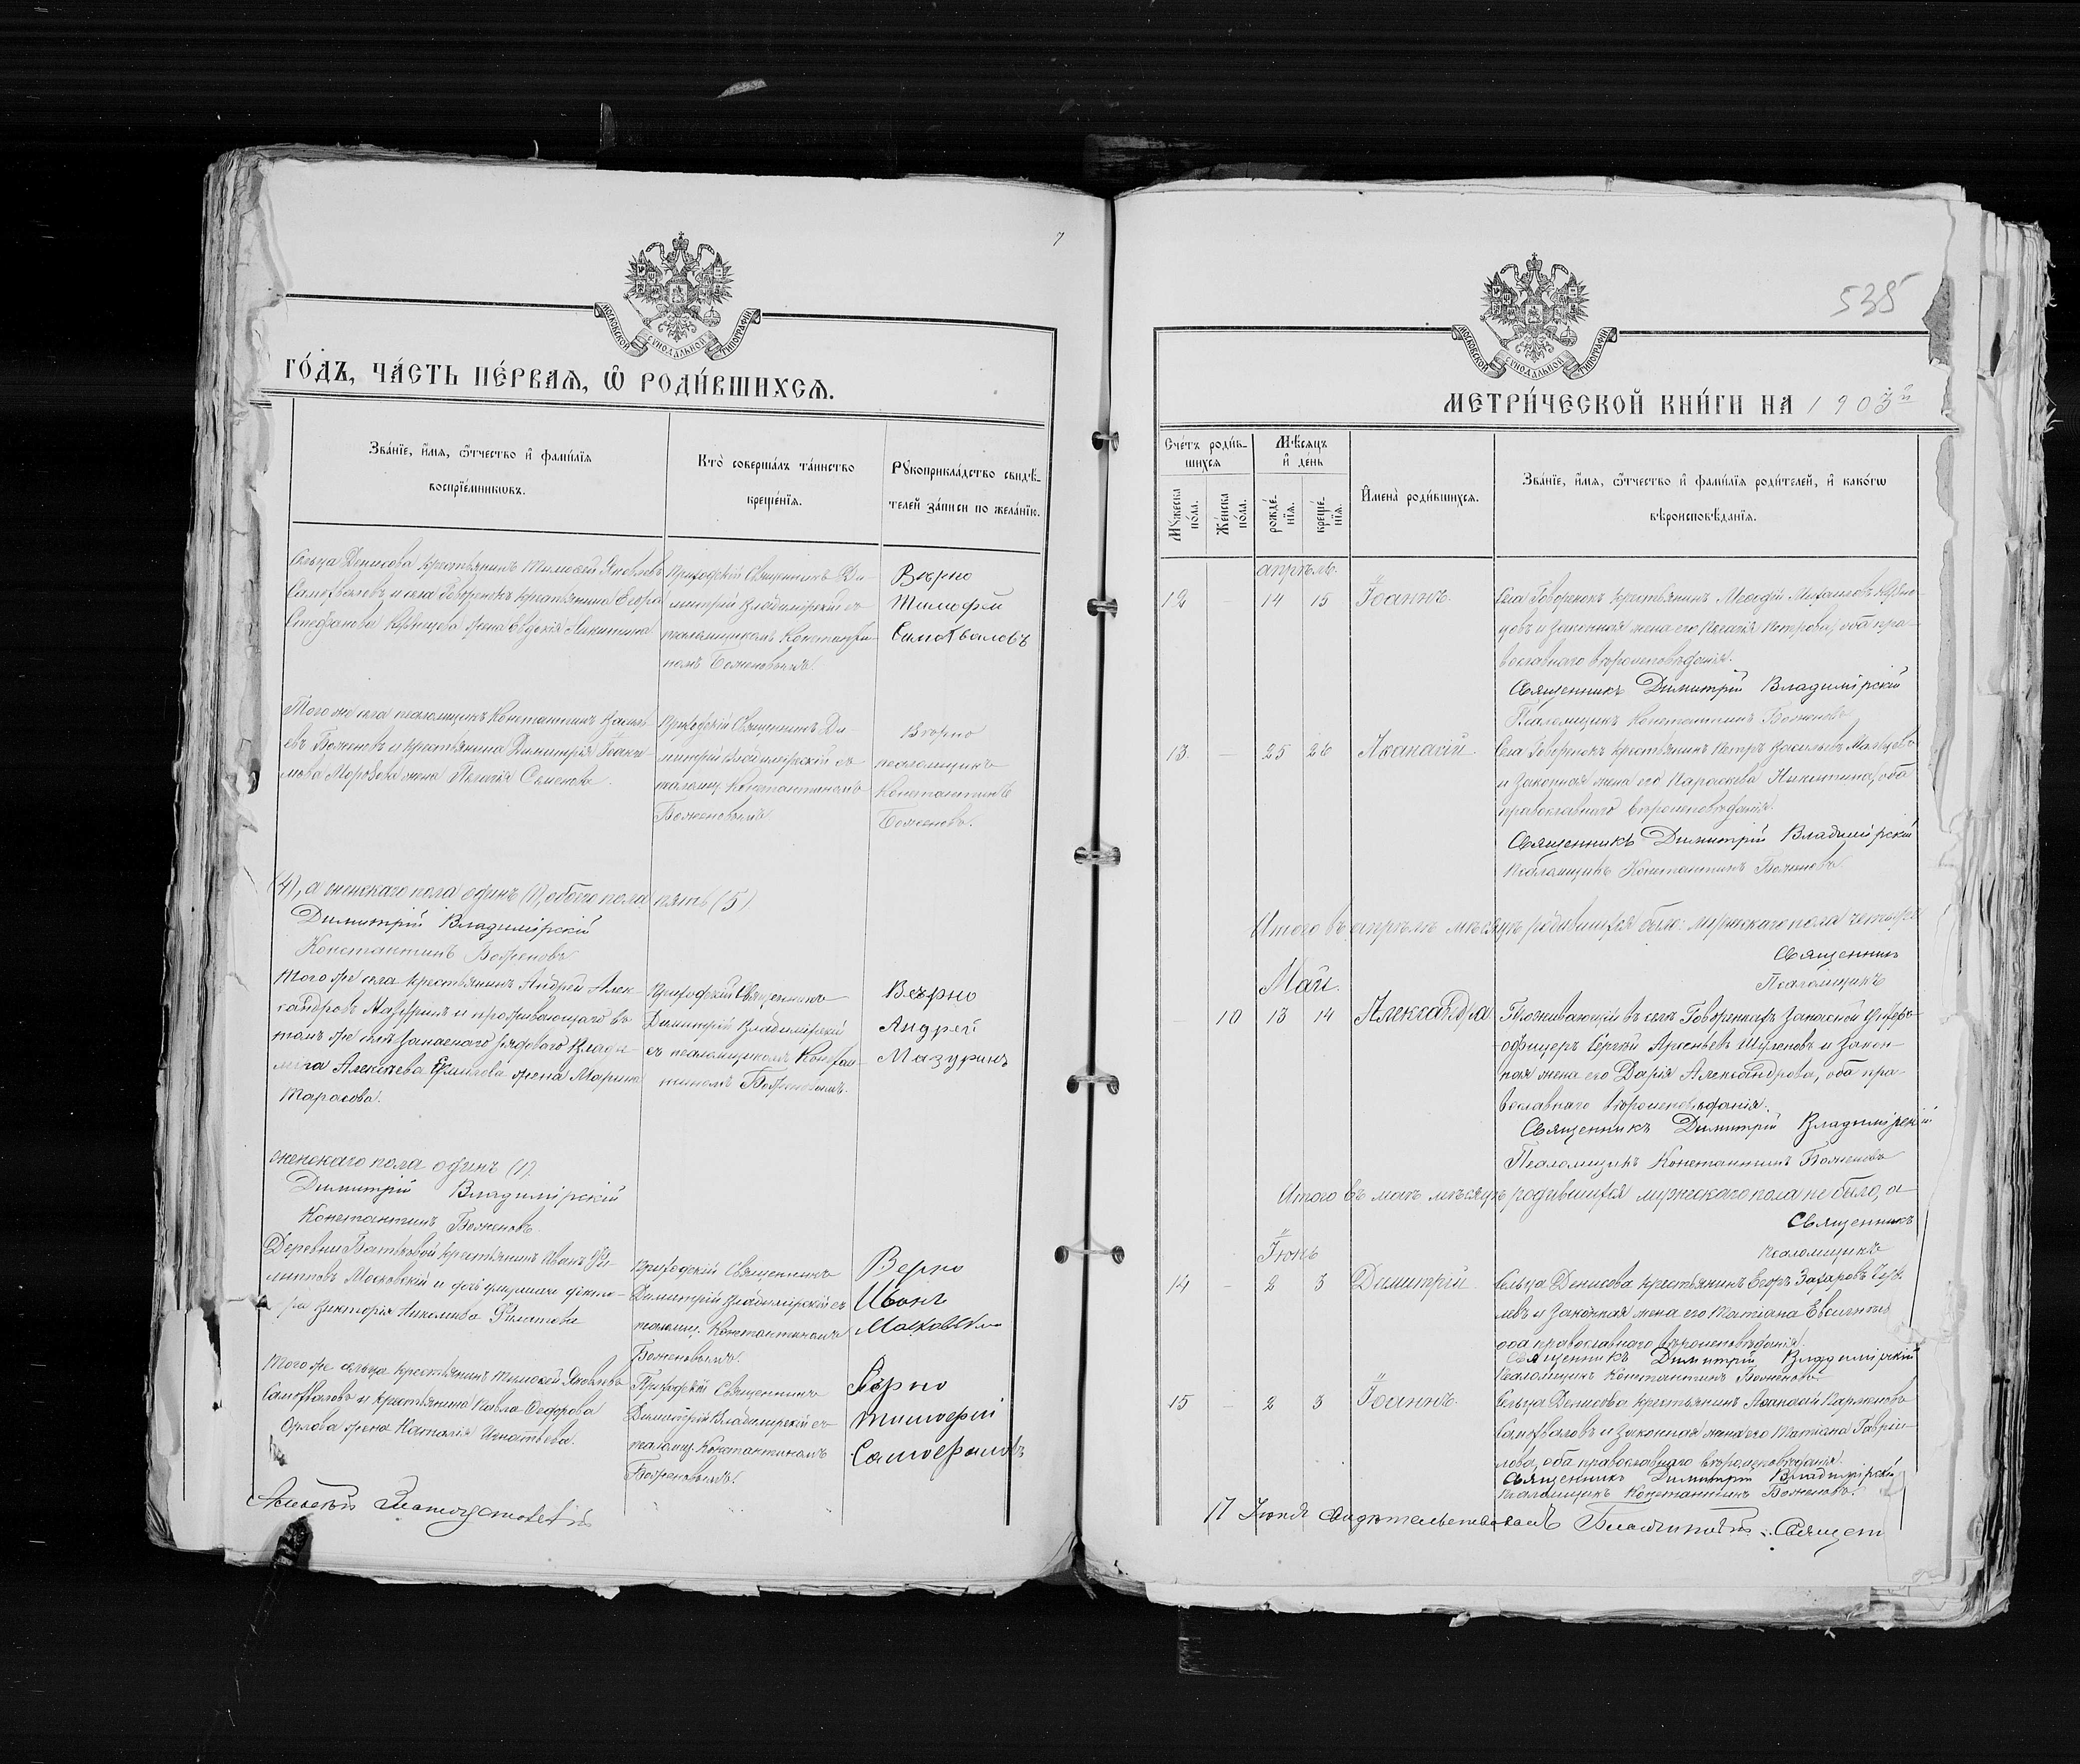 7
МОСКОВСКОЙ СѴНОДАЛЬНОЙ ТИПОГРАФІИ
ГО́ДЪ, ЧА́СТЬ ПЕ́РВАѦ, Ѡ҆ РОДИ́ВШИХСѦ.
Зва́нїе, и҆́мѧ, ѻ҆́тчество и҆ фами́лїѧ воспрїе́мникѡвъ.
Кто̀ соверша́лъ та́инство креще́нїѧ.
Рꙋкоприкла́дство свидѣ́телей за́писи по жела́нїю.
Сельца Денисова крестьянинъ Тимоѳей Яковлевъ
Самохваловъ и села Говоренокъ крестьянина Егора
Стефанова Кузнецова жена Евдокія Никитина
Приходскій Священникъ Ди-
митрій Владимірскій съ
псаломщикомъ Константи-
номъ Боженовымъ.
Вѣрно
Тимофей
Самохваловъ
Того же села псаломщикъ Константинъ Василь
евъ Боженовъ и крестьянина Димитрія Іоаки
мова Морозова жена Пелагія Семенова.
Приходскій Священникъ Ди-
митрій Владимірскій съ
псаломщ. Константиномъ
Боженовымъ
Вѣрно
псаломщикъ
Константинъ
Боженовъ.
(4), а женскаго пола одинъ (1), обоего пола пять (5)
Димитрій Владимірскій
Константинъ Боженовъ
Того же села крестьянинъ Андрей Алек-
сандровъ Мазуринъ и проживающаго въ
томъ же селѣ запаснаго рядового Влади-
міра Алексѣева жена Марина
Тарасова.
Приходскій Священникъ
Димитрій Владимірскій
съ псаломщикомъ Констан-
тиномъ Боженовымъ.
Вѣрно
Андрей
Мазуринъ
женскаго пола одинъ (1).
Димитрій Владимірскій
Константинъ Боженовъ
Деревни крестьянинъ Иванъ Фи-
липповъ Московскій и
Викторія Николаева Филатова
Приходскій Священникъ
Димитрій Владимірскій съ
псаломщ. Константиномъ
Боженовымъ.
Верно
Иванъ
Того же сельца крестьянинъ Тимоѳей Яковлевъ
Самохваловъ и крестьянина Павла Ѳедорова
Орлова жена Наталія Игнатьева.
Приходскій Священникъ
Димитрій Владимірскій съ
псаломщ. Константиномъ
Боженовымъ.
Вѣрно
Тимофей
535
МОСКОВСКОЙ СѴНОДАЛЬНОЙ ТИПОГРАФІИ
МЕТРИ́ЧЕСКОЙ КНИ́ГИ НА 1903й
Сче́тъ роди́вшихся
Мѣ́сяцъ и҆ де́нь
И҆мена̀ роди́вшихся.
Зва́нїе, и҆́мѧ, ѻ҆́тчество и҆ фами́лїѧ роди́телей, и҆ како́гѡ вѣроисповѣ́данїѧ.
Мꙋжеска по́ла.
Же́нска по́ла.
рожде́нїѧ.
креще́нїѧ.
апрѣль.
12 — 14 15 Іоаннъ.
Села Говоренокъ крестьянинъ Михаиловъ Кузне-
цовъ и законная жена его Пелагія Петрова, оба пра-
вославнаго вѣроисповѣданія.
Священникъ Димитрій Владимірскій
Псаломщикъ Константинъ Боженовъ
13 — 25 26 Аѳанасій
Села Говоренокъ крестьянинъ Петръ Васильевъ
и законная жена его Параскева Никитина, оба
православнаго вѣроисповѣданія.
Священникъ Димитрій Владимірскій
Псаломщикъ Константинъ Боженовъ
Итого въ апрѣлѣ мѣсяцѣ родившихся было: мужескаго пола четыре
Священникъ
Псаломщикъ
Май.
10 13 14 Александра
Проживающій въ селѣ Говоренкахъ запасной унтеръ-
офицеръ Сергѣй Арсеньевъ и закон-
ная жена его Дарія Александрова, оба пра-
вославнаго вѣроисповѣданія.
Священникъ Димитрій Владимірскій
Псаломщикъ Константинъ Боженовъ
Итого въ маѣ мѣсяцѣ родившихся мужескаго пола не было, а
Священникъ
Псаломщикъ
Іюнь
14 — 2 3 Димитрій
Сельца Денисова крестьянинъ Егоръ Захаровъ
и законная жена его Татіана
оба православнаго вѣроисповѣданія.
Священникъ Димитрій Владимірскій
Псаломщикъ Константинъ Боженовъ
15 — 2 3 Іоаннъ.
Сельца Денисова крестьянинъ Аѳанасій
Самохваловъ и законная жена его Татіана Гаврі-
лова, оба православнаго вѣроисповѣданія.
Священникъ Димитрій Владимірскій
Псаломщикъ Константинъ Боженовъ.
17 Іюня свидетельствовалъ Благочинный Священ